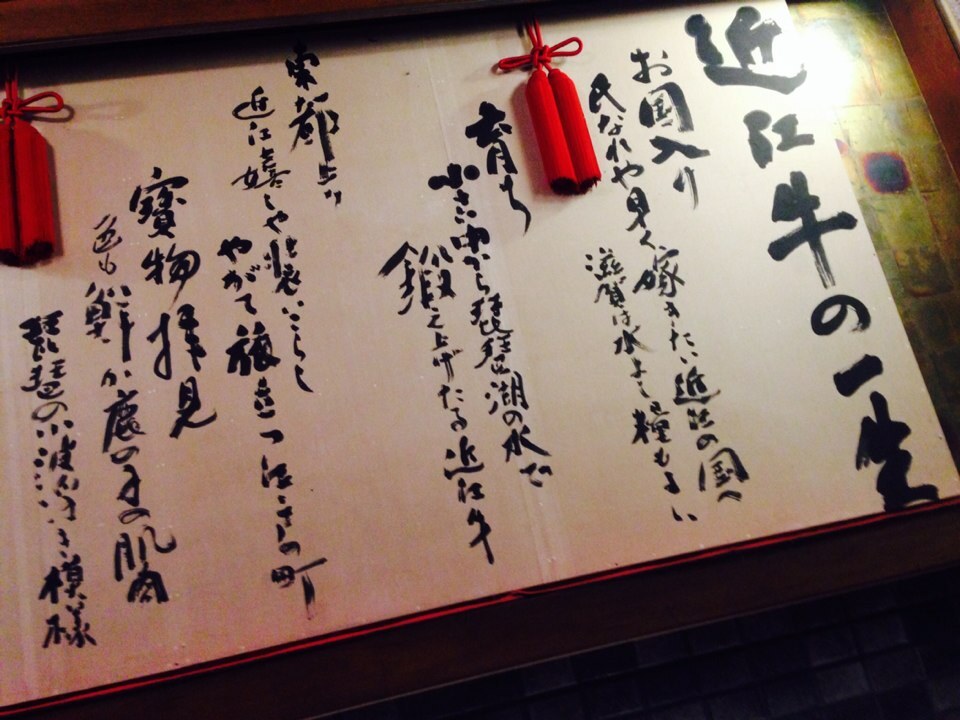 近江牛の一生
お国入り
氏なれや見く嫁きたい近江の国へ
滋賀は水よし糧もよい
育ち
小さい中から琵琶湖の水で
鍛え上げたる近江牛
東都上り
近江嬉しや装いこらし
やがて旅立つ
の町
寶物拝見
色も鮮か鹿の子の肌肉
琵琶の小波
模様